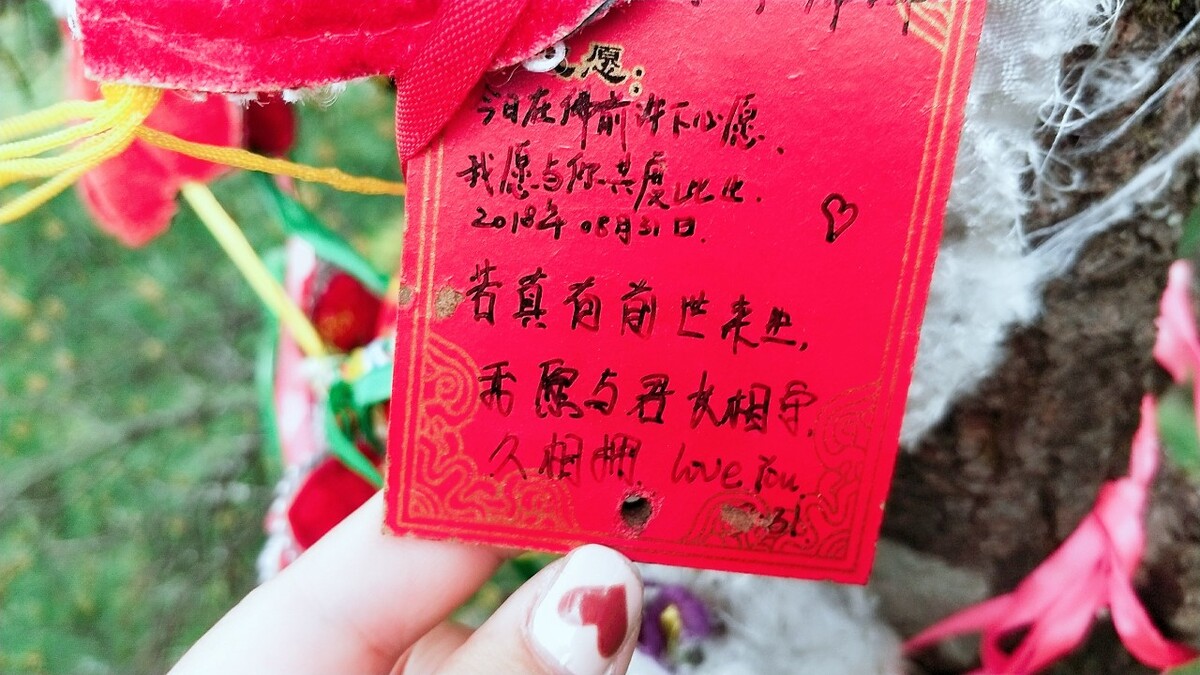 愿:
今日在佛前许下心愿、
我愿与你共度此生.
2018年08月31日.
若真有前世来生,
我愿与君长相守,
久相拥. Love You.
31